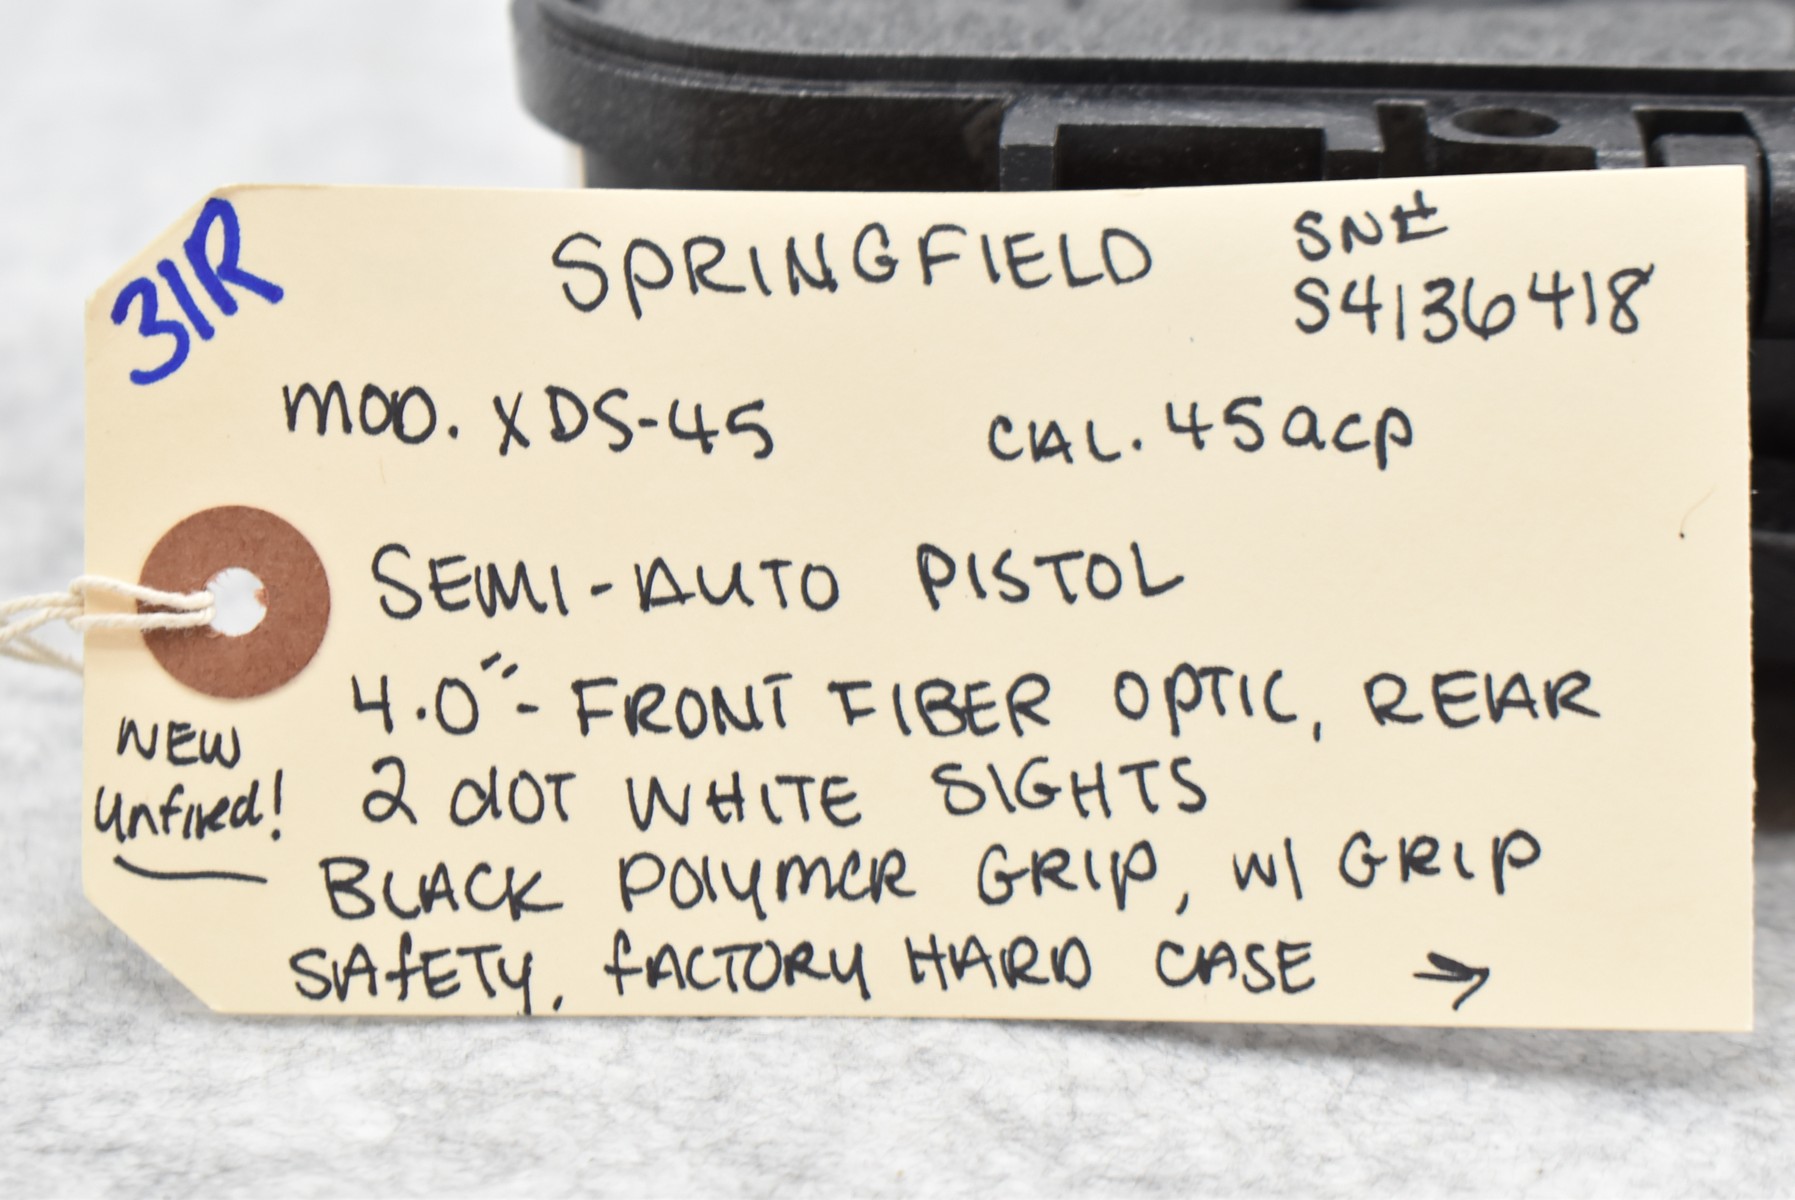 31R
SPRINGFIELD
SN#
S4136418
MOD. XDS-45 CAL. 45acp
SEMI-AUTO PISTOL
4.0"- FRONT FIBER OPTIC, REAR
2 dOT WHITE SIGHTS
BLACK POlymER GRIP, w/ GRIP
SAfETy, fACTORy HARD CASE →
NEW
Unfired!